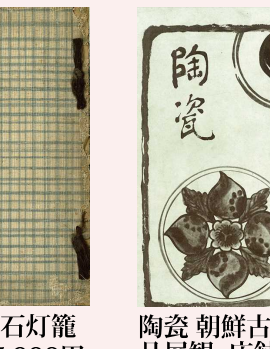 陶
瓷
石灯籠
陶瓷 朝鮮古